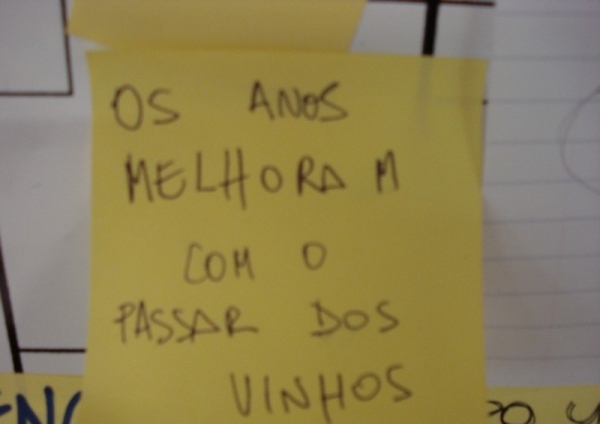 OS ANOS
MELHORAM
COM O
PASSAR DOS
VINHOS